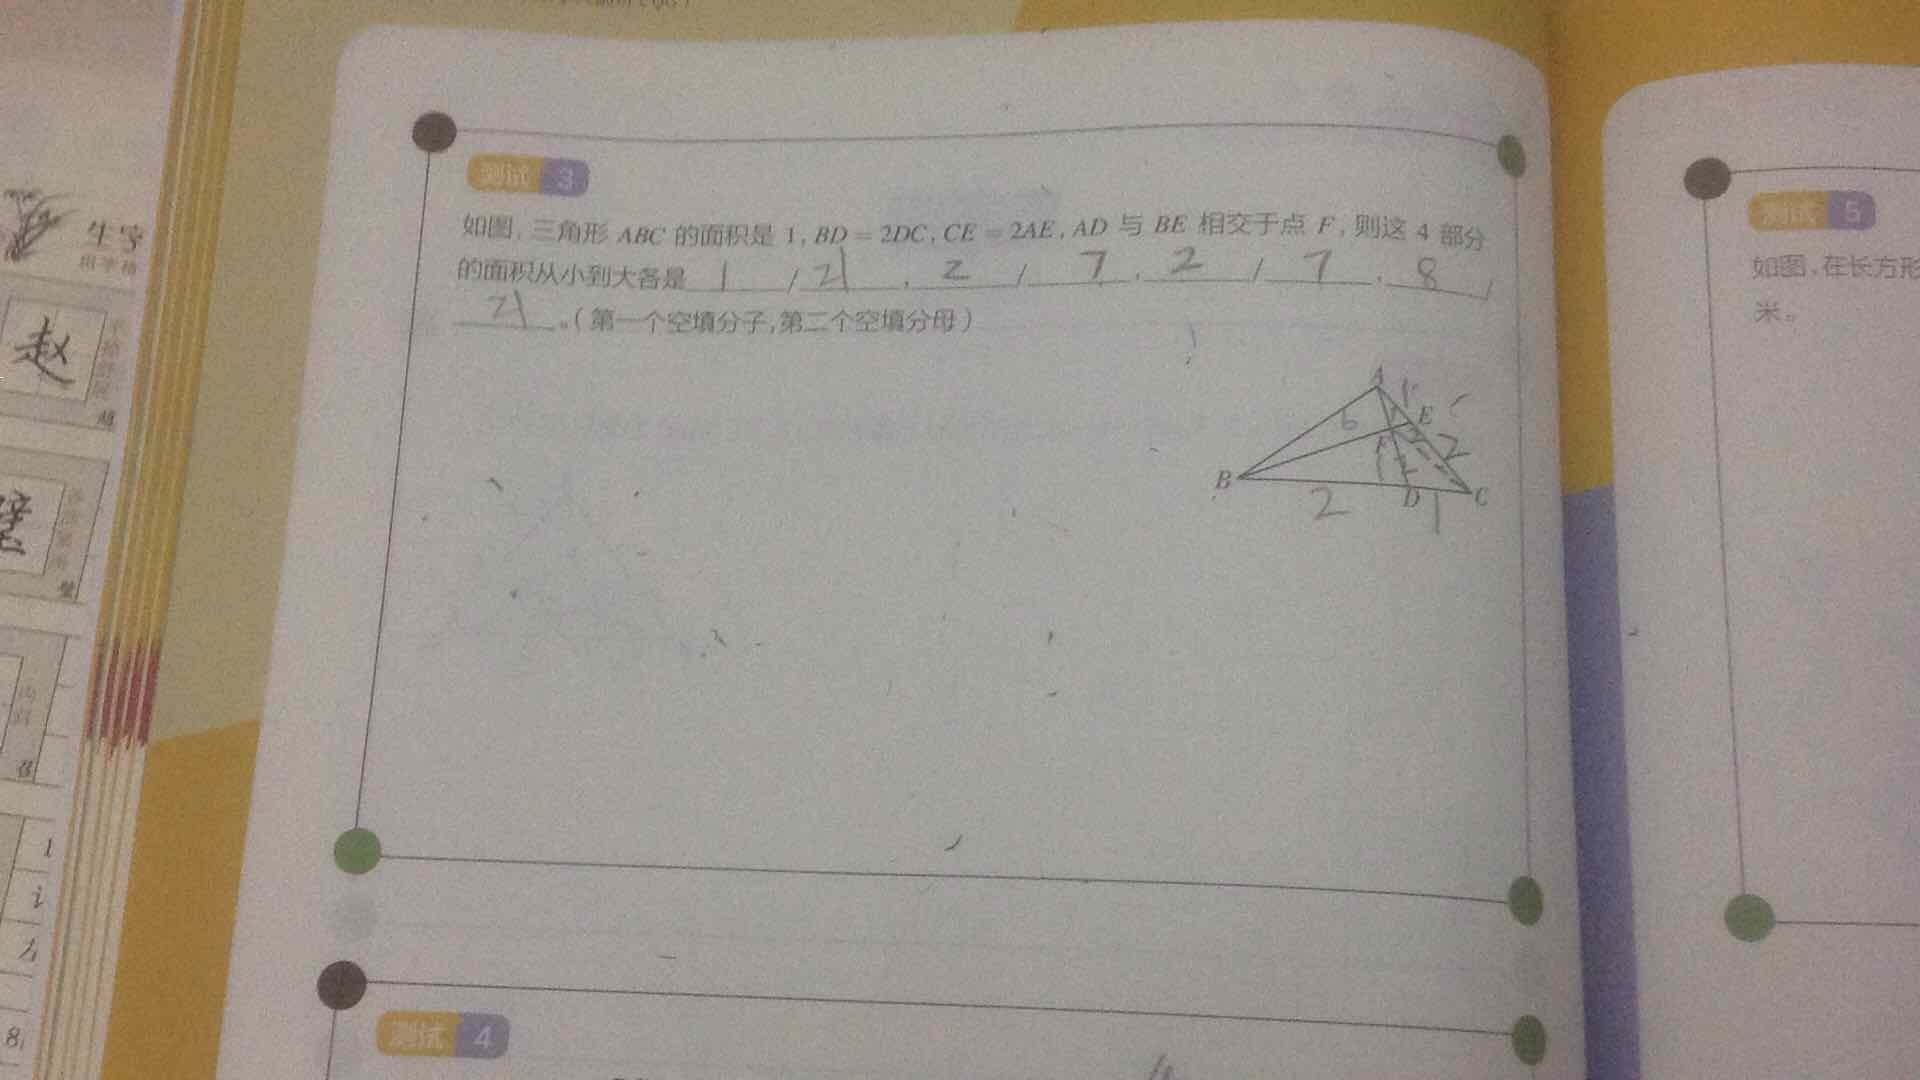 生字
田字格
赵
测试 3
如图,三角形 ABC 的面积是 1, BD = 2DC, CE = 2AE, AD 与 BE 相交于点 F, 则这 4 部分
的面积从小到大各是 1 / 21 , 2 / 7 , 2 / 7 , 8 /
21 。(第一个空填分子,第二个空填分母)
A 1
E
6
2
F
B
2
D
1
C
测试 4
测试 5
如图,在长方形
米。